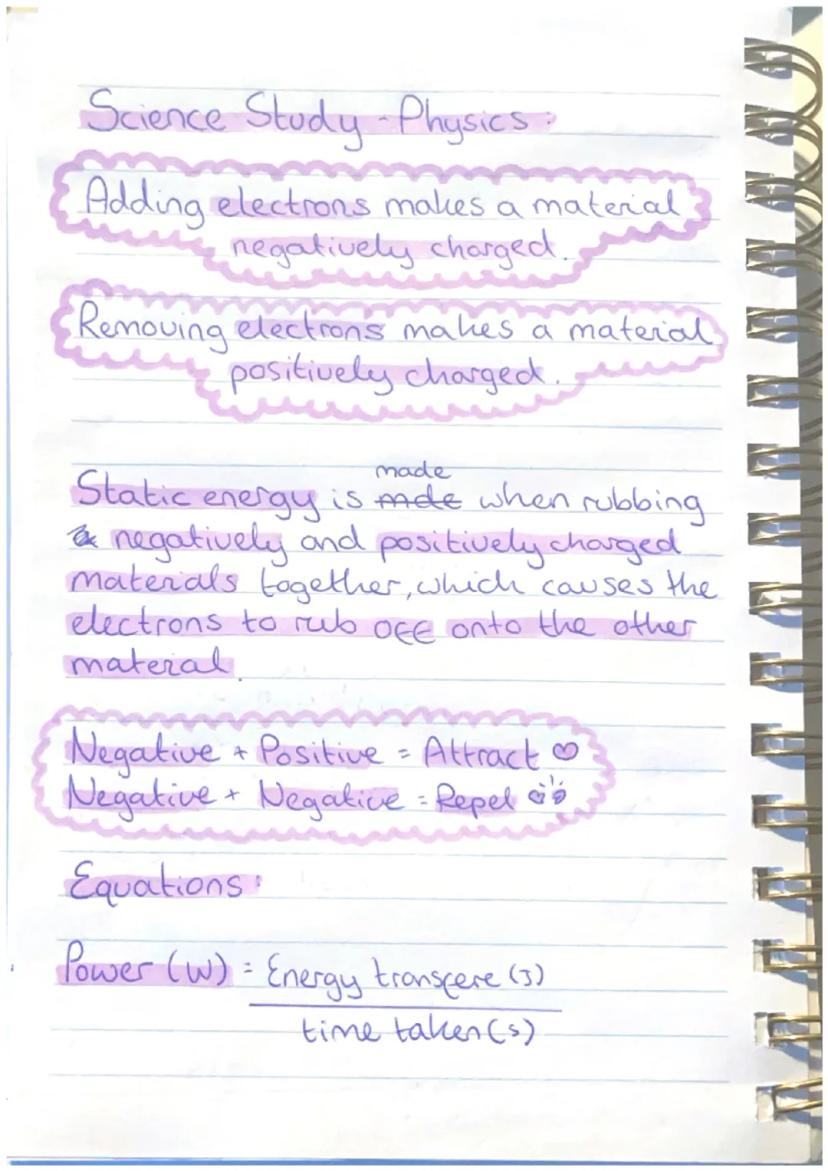 Science Study - Physics:
Adding electrons makes a material
negatively charged.
Removing electrons makes a material
positively charged.
made
Static energy is mde when rubbing
negatively and positively charged
materials together, which causes the
electrons to rub off onto the other
materal.
Negative + Positive = Attract ♡
Negative + Negative = Repel
Equations:
Power (W) = Energy transfere (J)
time taken (s)